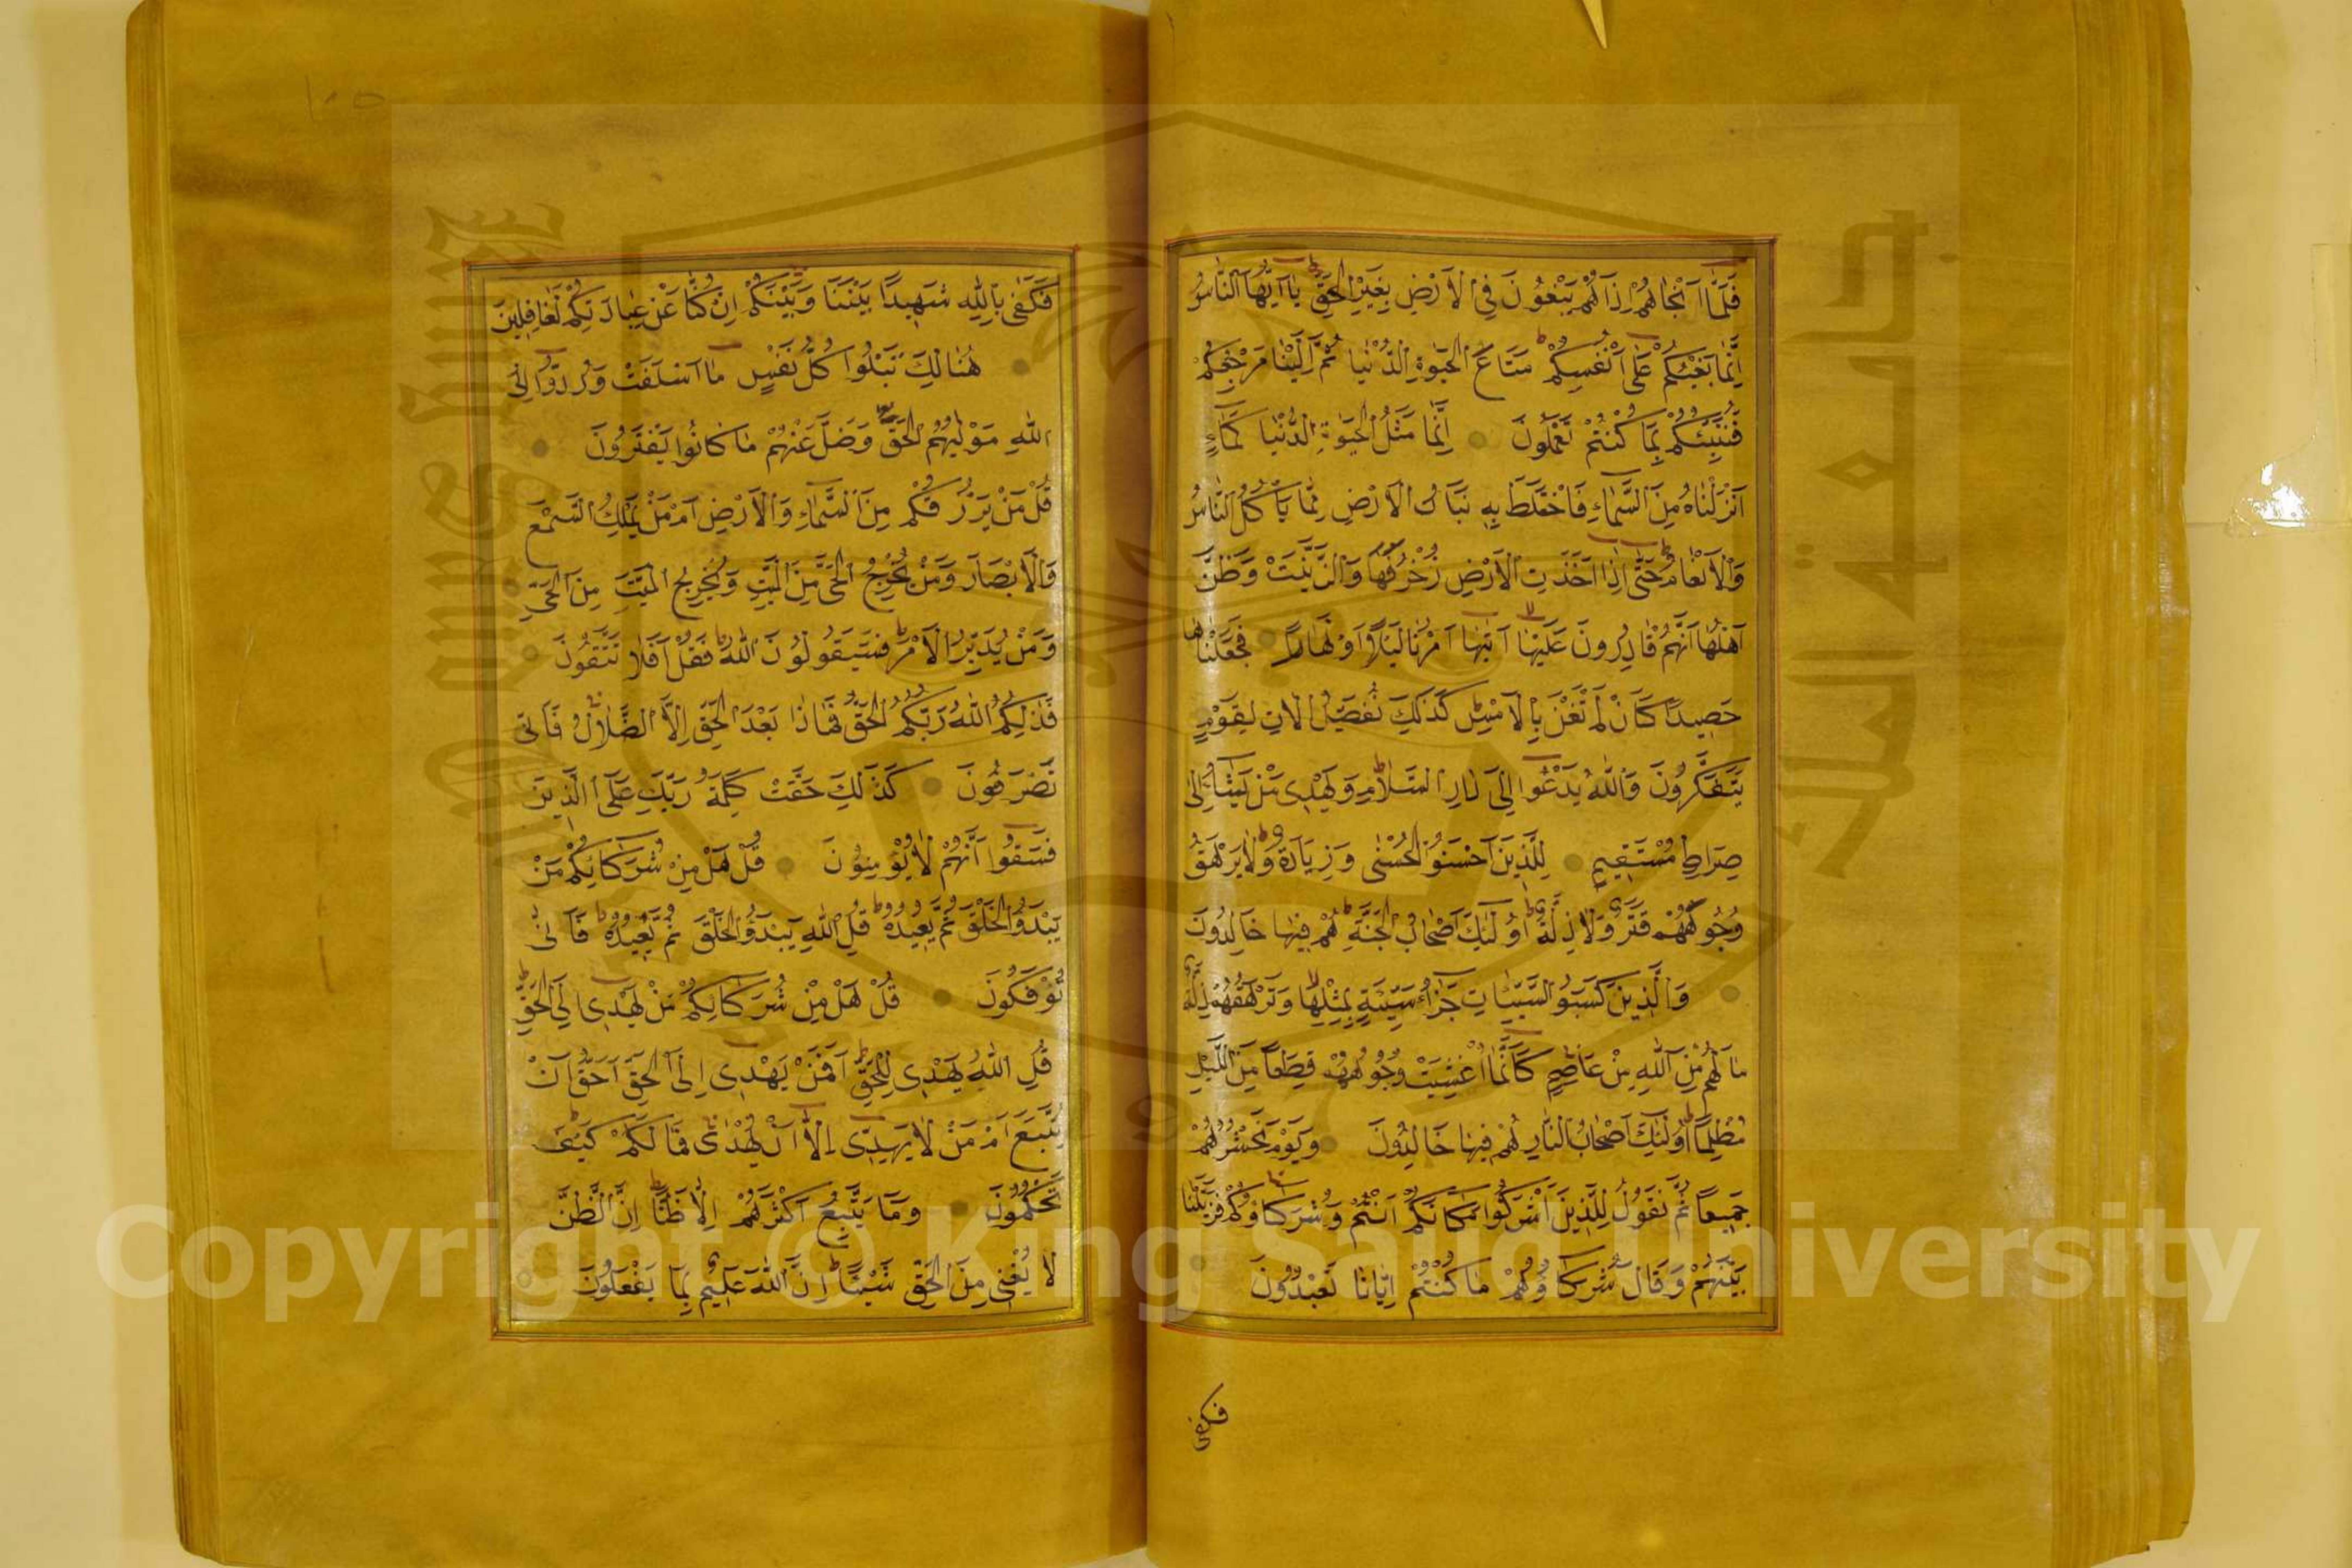 فَلَمَّا اَنْجَاهُمْ اِذَا هُمْ يَبْغُونَ فِي الْاَرْضِ بِغَيْرِ الْحَقِّ يَا اَيُّهَا النَّاسُ
اِنَّمَا بَغْيُكُمْ عَلٰى اَنْفُسِكُمْ مَتَاعَ الْحَيٰوةِ الدُّنْيَا ثُمَّ اِلَيْنَا مَرْجِعُكُمْ
فَنُنَبِّئُكُمْ بِمَا كُنْتُمْ تَعْمَلُونَ اِنَّمَا مَثَلُ الْحَيٰوةِ الدُّنْيَا كَمَاءٍ
اَنْزَلْنَاهُ مِنَ السَّمَاءِ فَاخْتَلَطَ بِهِ نَبَاتُ الْاَرْضِ مِمَّا يَاْكُلُ النَّاسُ
وَالْاَنْعَامُ حَتّٰى اِذَا اَخَذَتِ الْاَرْضُ زُخْرُفَهَا وَازَّيَّنَتْ وَظَنَّ
اَهْلُهَا اَنَّهُمْ قَادِرُونَ عَلَيْهَا اَتٰيهَا اَمْرُنَا لَيْلًا اَوْ نَهَارًا فَجَعَلْنَاهَا
حَصِيدًا كَاَنْ لَمْ تَغْنَ بِالْاَمْسِ كَذٰلِكَ نُفَصِّلُ الْاٰيَاتِ لِقَوْمٍ
يَتَفَكَّرُونَ وَاللّٰهُ يَدْعُوا اِلٰى دَارِ السَّلَامِ وَيَهْدِى مَنْ يَشَاءُ اِلٰى
صِرَاطٍ مُسْتَقِيمٍ لِلَّذِينَ اَحْسَنُوا الْحُسْنٰى وَزِيَادَةٌ وَلَا يَرْهَقُ
وُجُوهَهُمْ قَتَرٌ وَلَا ذِلَّةٌ اُولٰئِكَ اَصْحَابُ الْجَنَّةِ هُمْ فِيهَا خَالِدُونَ
وَالَّذِينَ كَسَبُوا السَّيِّئَاتِ جَزَاءُ سَيِّئَةٍ بِمِثْلِهَا وَتَرْهَقُهُمْ ذِلَّةٌ
مَا لَهُمْ مِنَ اللّٰهِ مِنْ عَاصِمٍ كَاَنَّمَا اُغْشِيَتْ وُجُوهُهُمْ قِطَعًا مِنَ اللَّيْلِ
مُظْلِمًا اُولٰئِكَ اَصْحَابُ النَّارِ هُمْ فِيهَا خَالِدُونَ وَيَوْمَ نَحْشُرُهُمْ
جَمِيعًا ثُمَّ نَقُولُ لِلَّذِينَ اَشْرَكُوا مَكَانَكُمْ اَنْتُمْ وَشُرَكَاؤُكُمْ فَزَيَّلْنَا
بَيْنَهُمْ وَقَالَ شُرَكَاؤُهُمْ مَا كُنْتُمْ اِيَّانَا تَعْبُدُونَ
فكفى
فَكَفٰى بِاللّٰهِ شَهِيدًا بَيْنَنَا وَبَيْنَكُمْ اِنْ كُنَّا عَنْ عِبَادَتِكُمْ لَغَافِلِينَ
هُنَالِكَ تَبْلُوا كُلُّ نَفْسٍ مَا اَسْلَفَتْ وَرُدُّوا اِلَى
اللّٰهِ مَوْلٰيهُمُ الْحَقِّ وَضَلَّ عَنْهُمْ مَا كَانُوا يَفْتَرُونَ
قُلْ مَنْ يَرْزُقُكُمْ مِنَ السَّمَاءِ وَالْاَرْضِ اَمَّنْ يَمْلِكُ السَّمْعَ
وَالْاَبْصَارَ وَمَنْ يُخْرِجُ الْحَىَّ مِنَ الْمَيِّتِ وَيُخْرِجُ الْمَيِّتَ مِنَ الْحَىِّ
وَمَنْ يُدَبِّرُ الْاَمْرَ فَسَيَقُولُونَ اللّٰهُ فَقُلْ اَفَلَا تَتَّقُونَ
فَذٰلِكُمُ اللّٰهُ رَبُّكُمُ الْحَقُّ فَمَاذَا بَعْدَ الْحَقِّ اِلَّا الضَّلَالُ فَاَنّٰى
تُصْرَفُونَ كَذٰلِكَ حَقَّتْ كَلِمَةُ رَبِّكَ عَلَى الَّذِينَ
فَسَقُوا اَنَّهُمْ لَا يُؤْمِنُونَ قُلْ هَلْ مِنْ شُرَكَائِكُمْ مَنْ
يَبْدَؤُا الْخَلْقَ ثُمَّ يُعِيدُهُ قُلِ اللّٰهُ يَبْدَؤُا الْخَلْقَ ثُمَّ يُعِيدُهُ فَاَنّٰى
تُؤْفَكُونَ قُلْ هَلْ مِنْ شُرَكَائِكُمْ مَنْ يَهْدِى اِلَى الْحَقِّ
قُلِ اللّٰهُ يَهْدِى لِلْحَقِّ اَفَمَنْ يَهْدِى اِلَى الْحَقِّ اَحَقُّ اَنْ
يُتَّبَعَ اَمَّنْ لَا يَهِدِّى اِلَّا اَنْ يُهْدٰى فَمَا لَكُمْ كَيْفَ
تَحْكُمُونَ وَمَا يَتَّبِعُ اَكْثَرُهُمْ اِلَّا ظَنًّا اِنَّ الظَّنَّ
لَا يُغْنِى مِنَ الْحَقِّ شَيْئًا اِنَّ اللّٰهَ عَلِيمٌ بِمَا يَفْعَلُونَ
١٠٥
Copyright © King Saud University